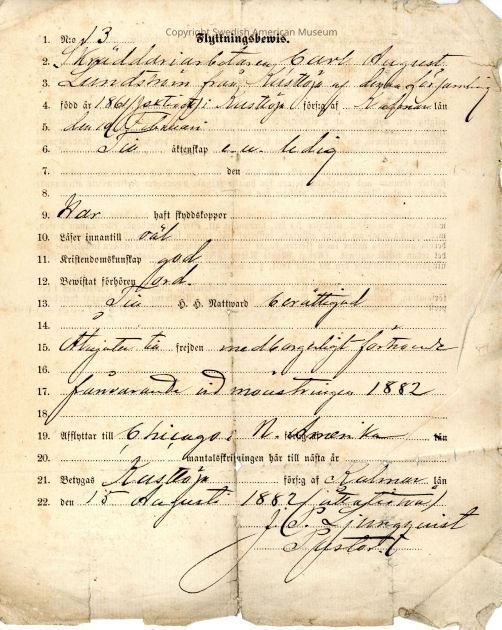 Copyright Swedish American Museum
1. N:o 13 Flyttningsbewis.
2. Skräddriarbetaren Carl August
3. från af denna församling
4. född år 1861 i förs:g af Kalmar län
5. den 10 Februari
6. Till äktenskap e. u. ledig
7. den
8.
9. Har haft skyddskoppor
10. Läser innantill väl
11. Kristendomskunskap god
12. Bewistat förhören ord.
13. Till H. H. Nattward berättigad
14.
15. Atnjuter till frejden medborgerligt förtroende
16.
17. frånvarande vid mönstringen 1882
18.
19. Afflyttar till Chicago i N. Amerika län
20. mantalsskrifningen här till nästa år
21. Betygas förs:g af Kalmar län
22. den 15 Augusti 1882
J. C. Ljungqvist
Pastor